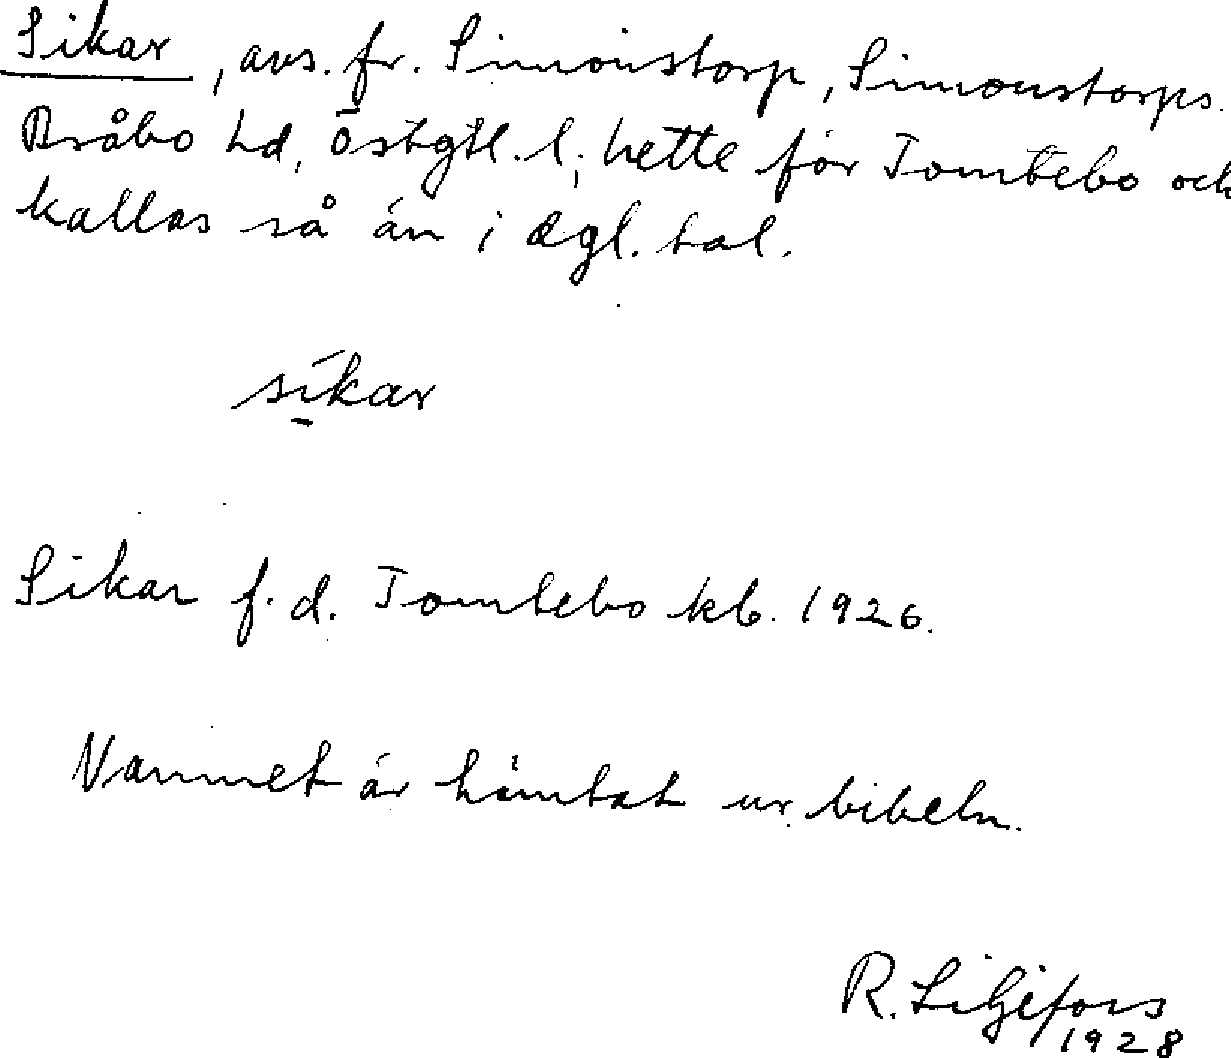 Sikar, avs. fr. Simonstorp, Simonstorps.
Bråbo hd, Östgtl. l; hette förr Tomtebo och
kallas så än i dagl. tal.
síkar
Sikar f. d. Tomtebo kb. 1926.
Namnet är hämtat ur bibeln.
R. Liljefors
1928